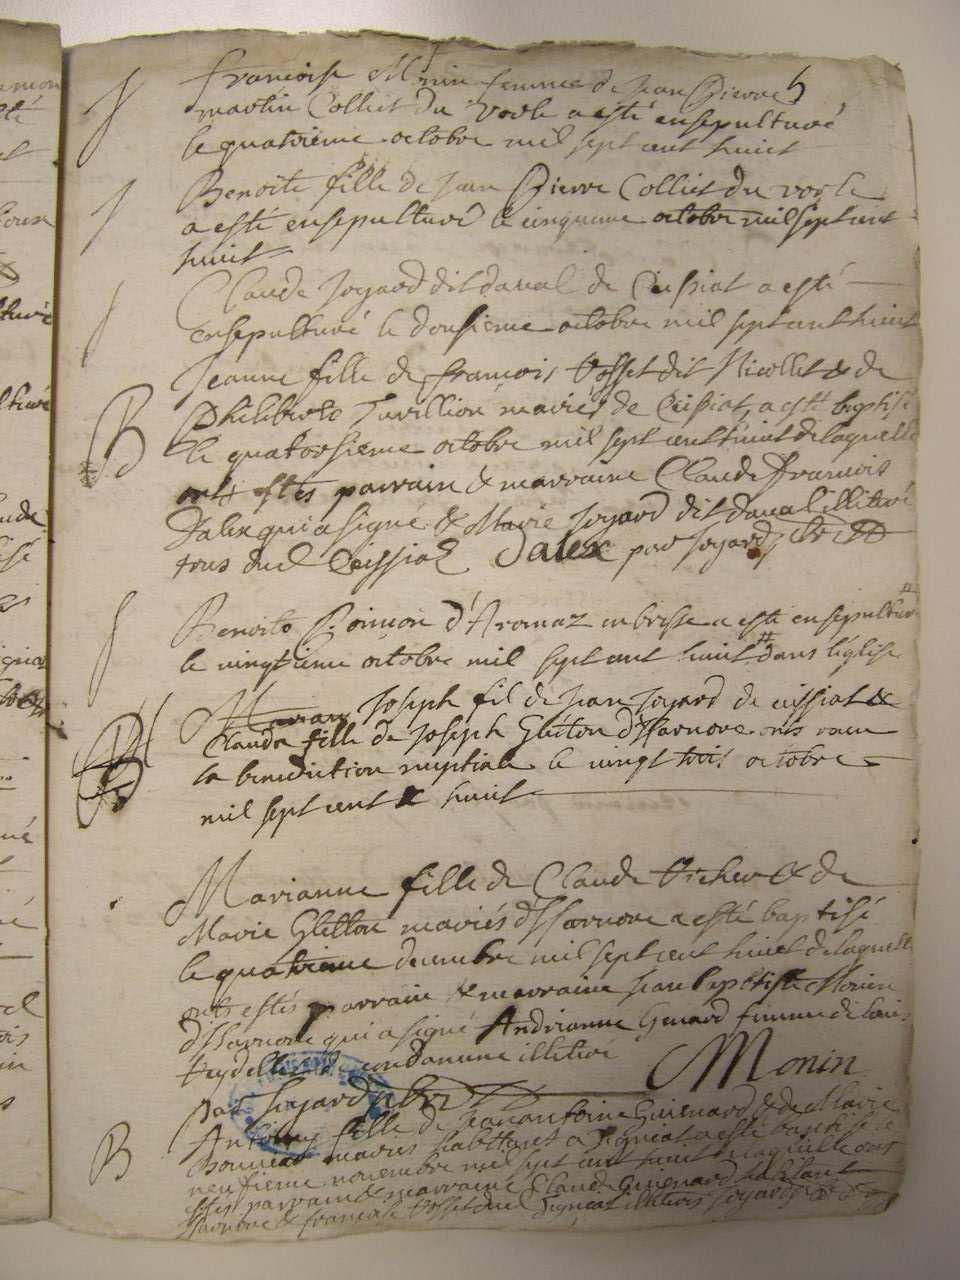 5
S françoise Monin femme de Jean Pierre
martin Colliet du Vorle a esté ensepulturé
le quatrieme octobre mil sept cent huict
S Benoite fille de Jean Pierre Colliet du vorle
a esté ensepulturé le cinquieme octobre mil sept cent
huict
S Claude Joyard dit daval de Ceissiat a esté
ensepulturé le dousieme octobre mil sept cent huict
B Jeanne fille de françois Vosset dit Nicollet & de
Philiberte Juvillion mariés de Ceissiat, a esté baptisé
le quatorsieme octobre mil sept cent huict de laquelle
ont estés parrain & marraine Claude françois
Dalex qui a signé & Marie Joyard dit daval illitéré
tous du Ceissiat Dalex par Joyard
S Benoite d'Aromaz en bresse a esté ensepulturé
le vingtieme octobre mil sept cent huict dans l'église
Joseph fil de Jean Joyard de ceissiat &
Clauda fille de Joseph Gletton d'Isarnore ont receu
la benediction nuptiale le vingt trois octobre
mil sept cent & huict
Marianne fille de Claude & de
Marie Gletton mariés d'Isarnore a esté baptisé
le quatrieme decembre mil sept cent huict de laquelle
ont estés parrain & marraine Jean baptiste Monin
d'Isarnore qui a signé Andrianne Genard femme de
de condamine illitéré
Monin
par Joyard
B fille de Jean antoine Guienard & de Marie
mariés habittant a Signiat a esté baptisé le
neufieme novembre mil sept cent huict de laquelle ont
estés parrain & marraine Claude Guienard habitant
& françoise Vosset du Signiat illiterés Joyard